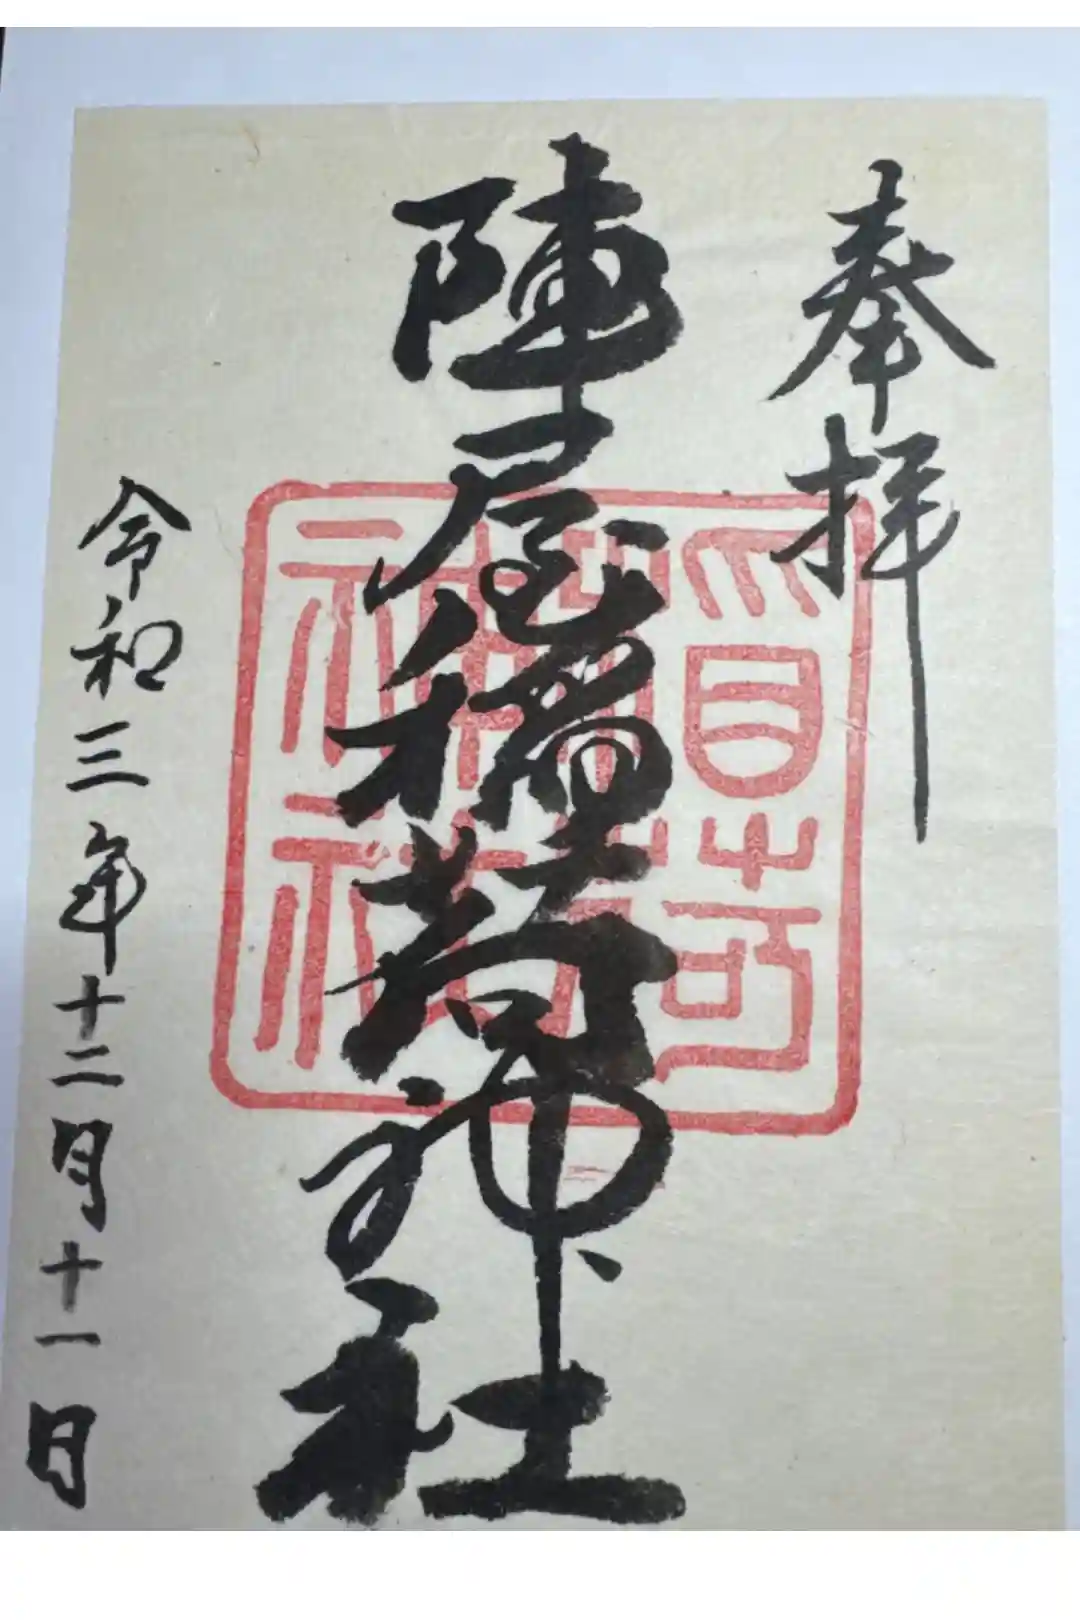 奉拝
陣屋稲荷神社
令和三年十二月十一日
稲荷
神社